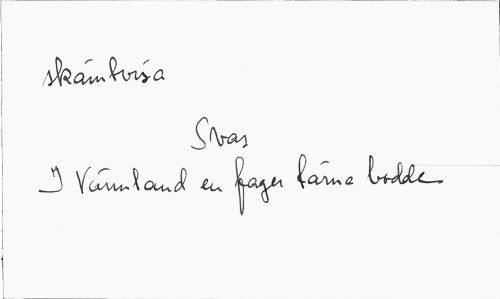 skämtvisa
Svas
I Värmland en fager tärna bodde